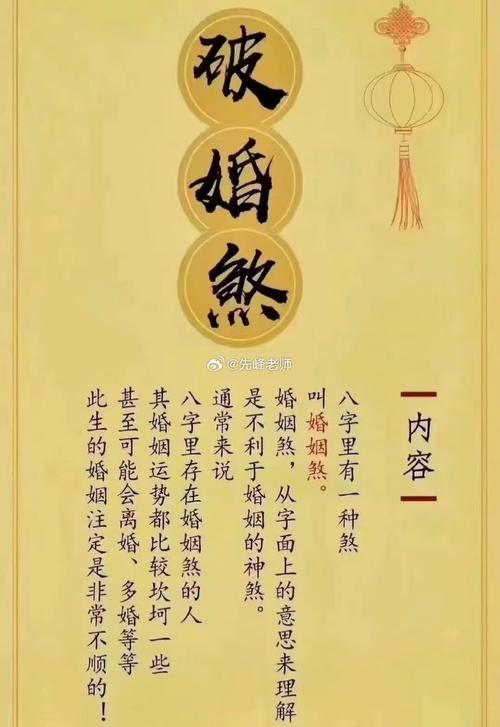 破婚煞
@先峰老师
内容
八字里有一种煞
叫婚姻煞。
婚姻煞，从字面上的意思来理解
是不利于婚姻的神煞。
通常来说
八字里存在婚姻煞的人
其婚姻运势都比较坎坷一些
甚至可能会离婚、多婚等等
此生的婚姻注定是非常不顺的！